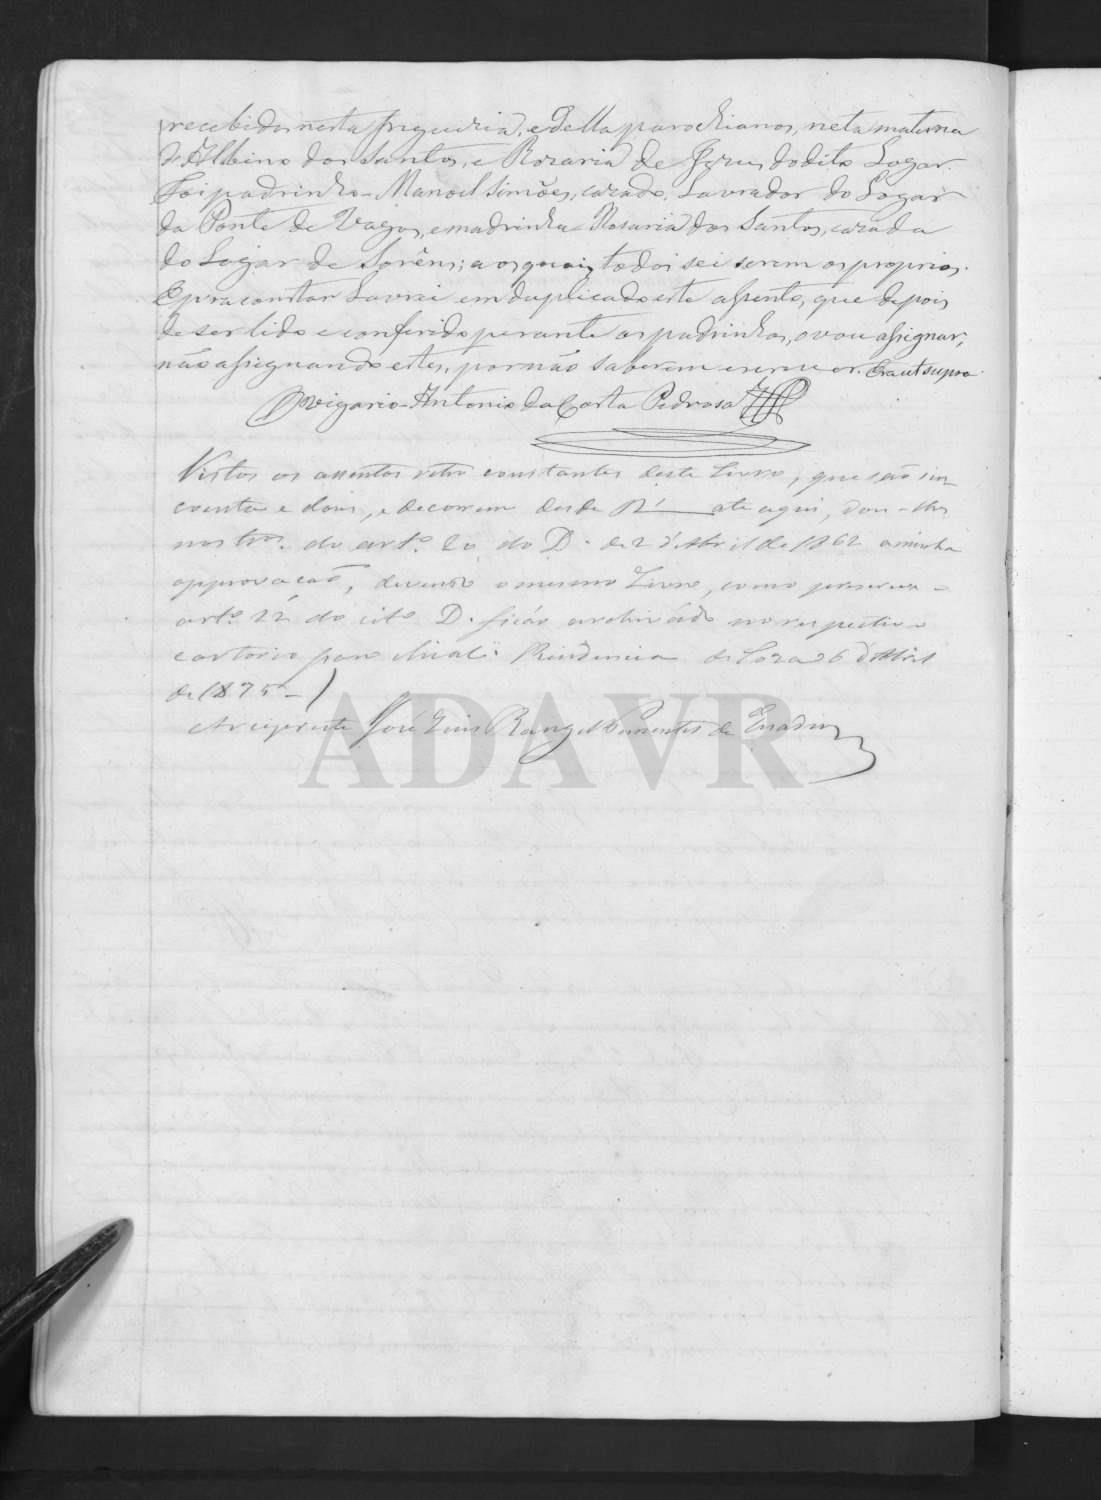 recebidos nesta freguezia, e della parochianos, neta materna
d'Albino dos Santos, e Rozaria de Jesus do dito Logar.
Foi padrinho - Manoel Simões, cazado, Lavrador do Logar
da Ponte de Vagos, e madrinha Rosaria dos Santos, cazada
do Logar de Sorêns; a os quais todos sei serem os proprios.
E pra constar Lavrei em duplicado este assento, que depois
de ser lido e conferido perante os padrinhos, o vou assignar,
não assignando estes, por não saberem escrever. Era ut supra.
O Vigario - Antonio da Costa Pedrosa
Vistos os assentos retro constantes deste Livro, que são sin
coenta e dois, e decorrem desde até aqui, dou-lhes
nos do artº 20 do D. de 2 d'Abril de 1862 a minha
approvação, devendo o mesmo Livro, como
artº 22 do citº D. ficar archivado no respectivo
cartorio parochial. Rezidencia de Soza 26 d'Abril
de 1875 -
Arcipreste José Luis Rangel de
ADAVR